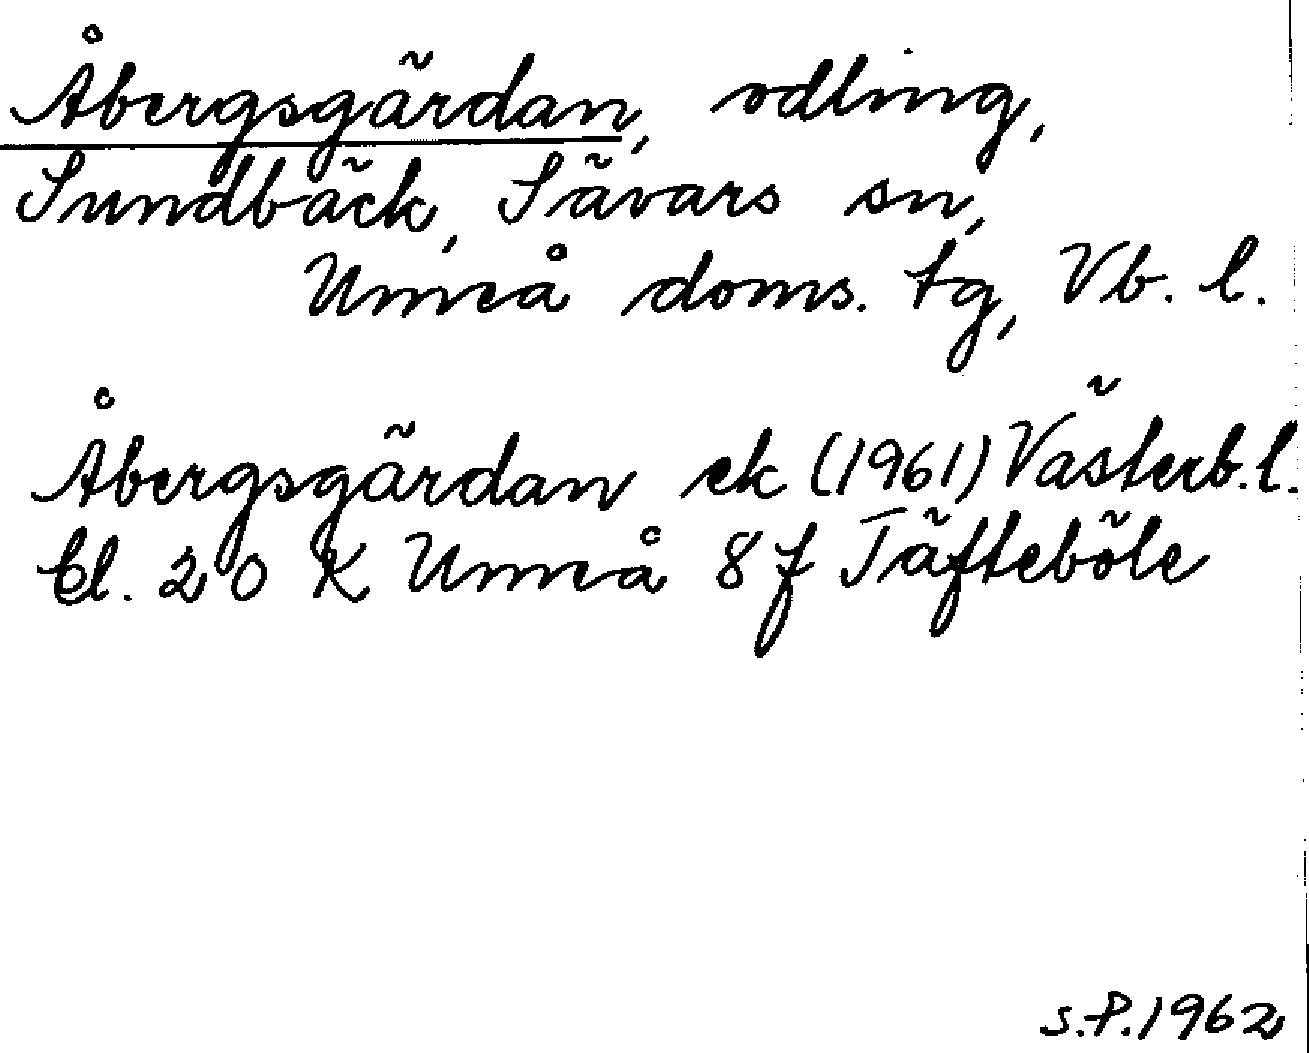 Åbergsgärdan, odling,
Sundbäck, Sävars sn,
Umeå doms. tg, Vb. l.
Åbergsgärdan ek (1961) Västerb. l.
bl. 20 K Umeå 8 f Täfteböle
S.P. 1962